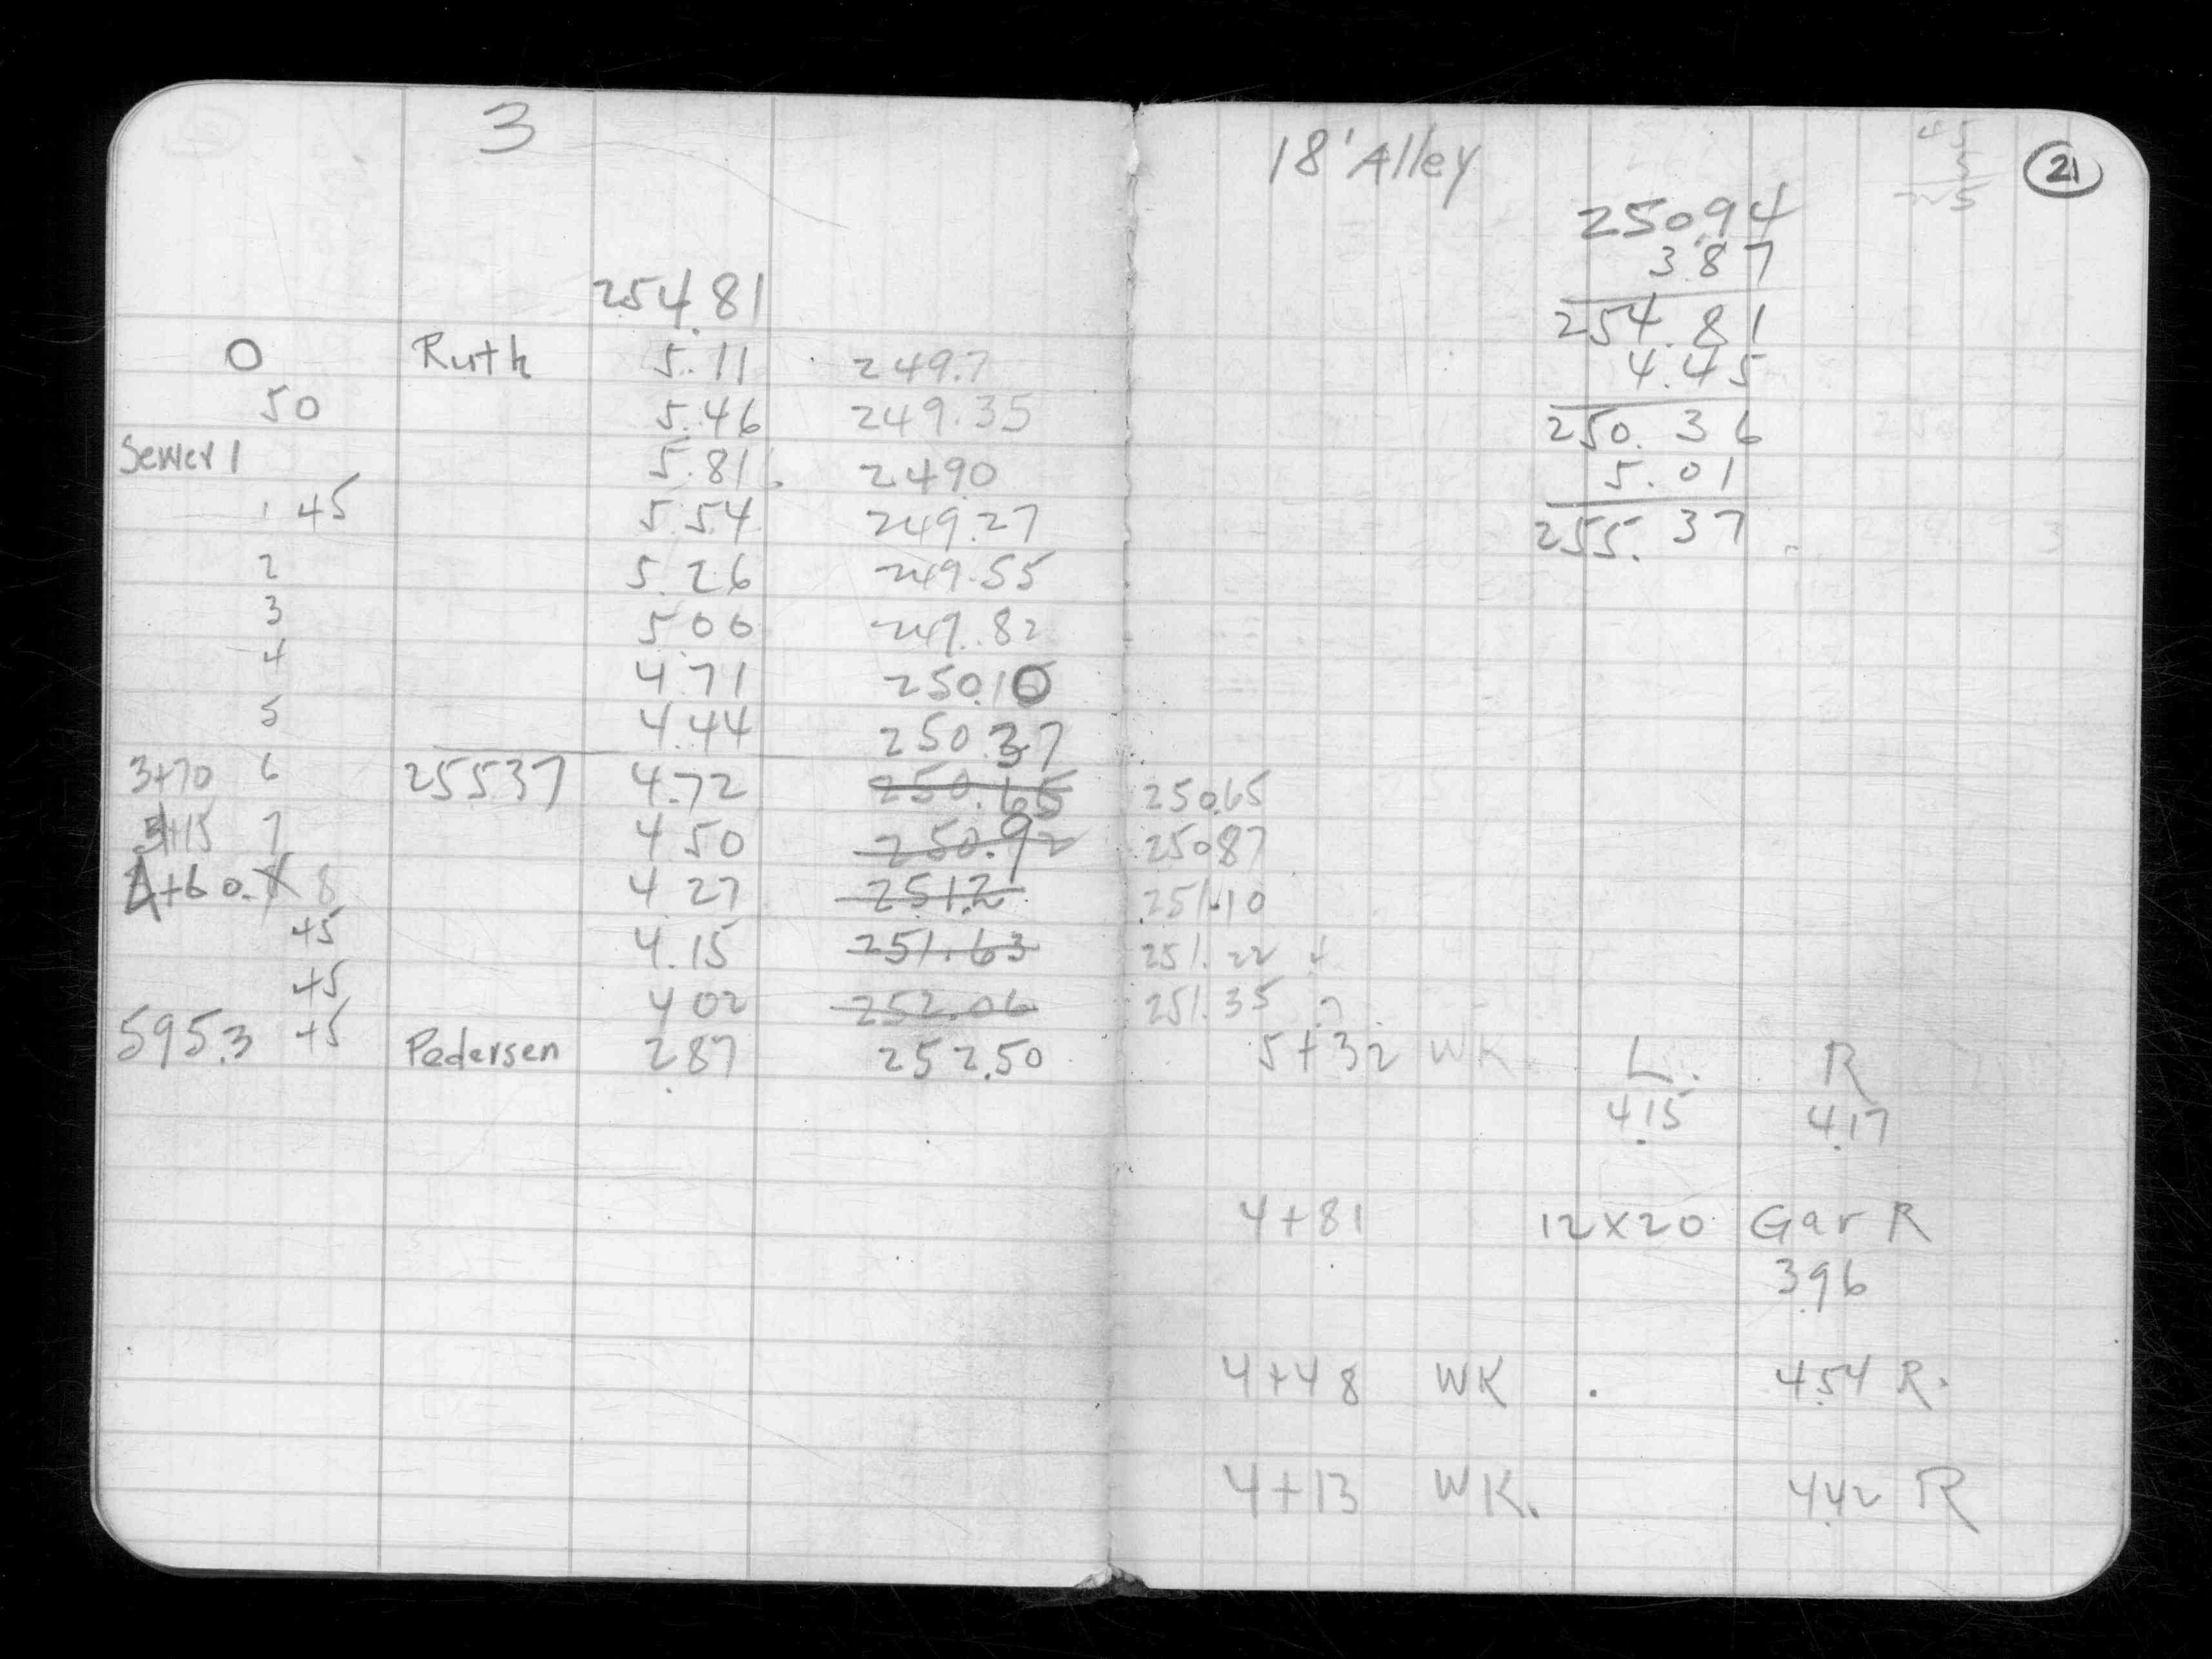 3
254.81
0 Ruth 5.11 249.7
50 5.46 249.35
Sewer 1 5.81 249.0
1 45 5.54 249.27
2 5.26 249.55
3 5.00 249.82
4 4.71 250.10
5 4.44 250.37
3+70 6 255.37 4.72 250.65 250.65
7 4.50 250.92 250.87
4+60. 8 4.27 251.2 251.10
+5 4.15 251.63 251.22
+5 4.02 252.06 251.35
595.3 +5 Pedersen 2.87 252.50
18' Alley
21
250.94
3.87
254.81
4.45
250.36
5.01
255.37
5+32 WK L. R
4.15 4.17
4+81 12x20 Gar R
3.96
4+48 WK 4.54 R.
4+13 WK. 4.42 R